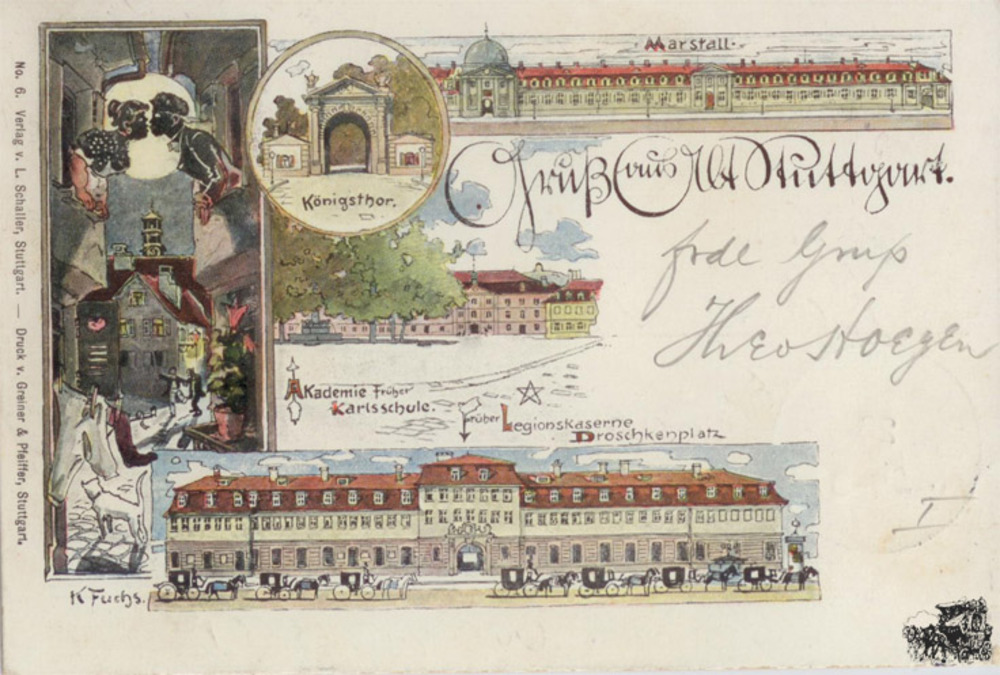 Marstall.
Königsthor.
Gruß aus Alt Stuttgart.
frdl Gruß
Theo Hoegen
Akademie früher
Karlsschule.
früher Legionskaserne
Droschkenplatz
K Fuchs.
No. 6. Verlag v. L. Schaller, Stuttgart. — Druck v. Greiner & Pfeiffer, Stuttgart.
I